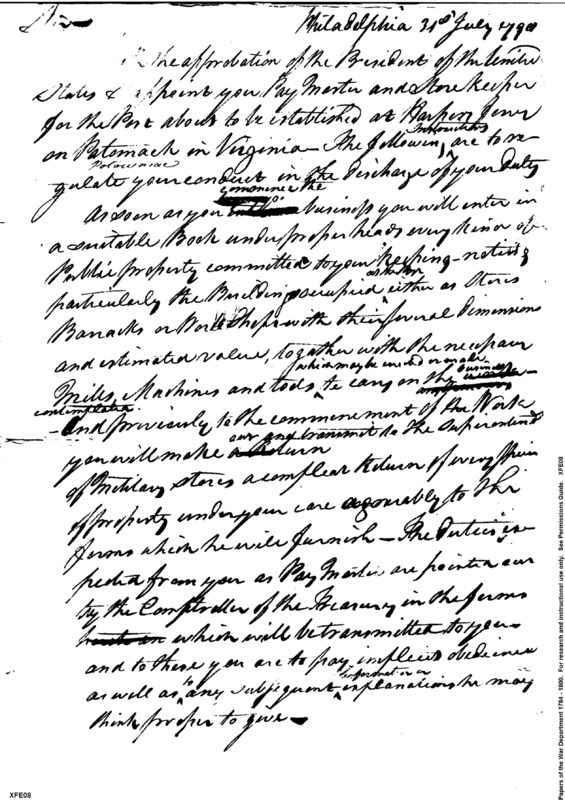 Sir Philadelphia 21st July 1798
the approbation of the President of the United
States I appoint you Pay Master and Store keeper
for the Post about to be established at Harpers
on Patomack in Virginia - The following Instructions are to re-
Potowmac
gulate your conduct in the discharge of your Duty
As soon as you commence the business you will enter in
a suitable Book under proper heads every kind of
Public property committed to your keeping - noting
particularly the Buildings occupied either as Stores
Barracks or Work Shops with their several Dimensions
and estimated value, together with the necessary
which may be erected or made
Mills, Machines and tools to carry on the business
contemplated
- And previously to the commencement of the Work
you will make out and transmit to the Superintend
of Military Stores a complear Return of every Specie
of property under your care agreeably to the
forms which he will furnish - The Duties ex-
pected from you as Pay Master are pointed out
by the Comptroller of the Treasury in the forms
which will be transmitted to you -
and to these you are to pay implicit obedience
as well as to any subsequent explanations he may
think proper to give -
XFE08
Papers of the War Department 1784 - 1800. For research and instructional use only. See Permissions Guide. XFE08